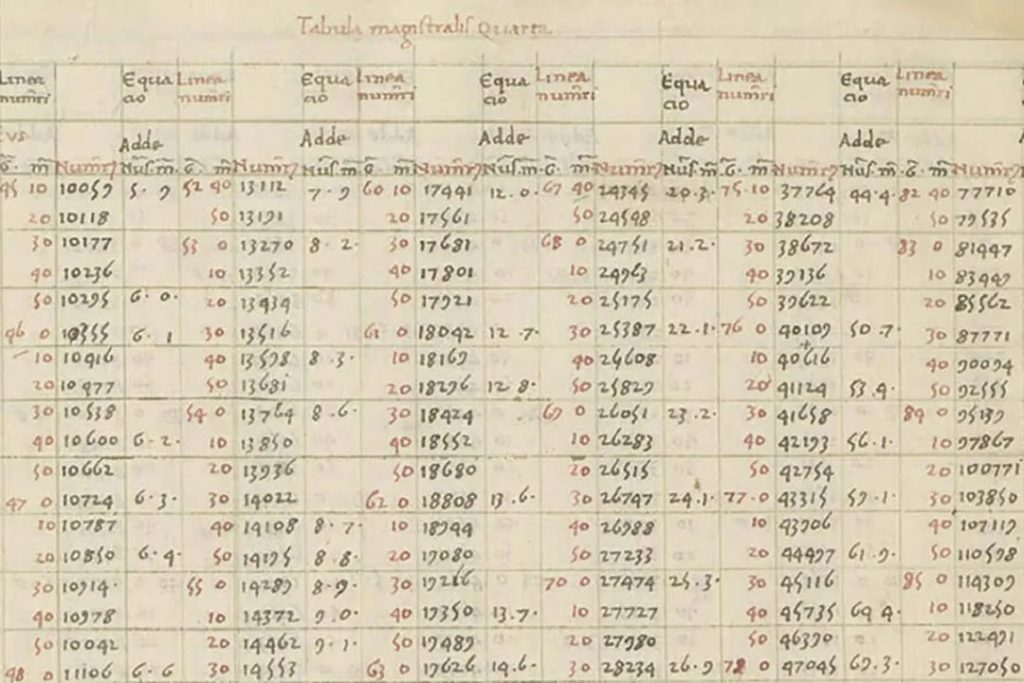 Tabula magistralis Quarta
Linea Equa Linea Equa Linea Equa Linea Equa Linea Equa Linea
num̃ri cio num̃ri cio num̃ri cio num̃ri cio num̃ri cio num̃ri
Adde Adde Adde Adde Adde
g̃. m̃ Num̃rꝫ Nũs. m̃. G. m̃ Num̃rꝫ Nũs. m̃ g̃ m̃ Num̃rꝫ Nũs. m̃. G. m̃ Num̃rꝫ Nũs. m̃. G. m̃ Num̃rꝫ Nũs. m̃. G. m̃ Num̃rꝫ
45 10 10059 5·9 52 40 13112 7·9 60 10 17441 12·0· 67 40 24345 20·3· 75·10 37764 44·4· 82 40 77710
20 10118 50 13191 20 17561 50 24548 20 38208 50 79535
30 10177 53 0 13270 8·2· 30 17681 68 0 24751 21·2· 30 38672 83 0 81447
40 10236 10 13352 40 17801 10 24963 40 39136 10 83449
50 10295 6·0· 20 13434 50 17921 20 25175 50 39622 20 85562
46 0 10355 6·1 30 13516 61 0 18042 12·7· 30 25387 22·1· 76 0 40109 50·7· 30 87771
10 10416 40 13598 8·3· 10 18169 40 25608 10 40616 40 90094
20 10477 50 13681 20 18296 12 8· 50 25829 20 41124 53·4· 50 92555
30 10538 54 0 13764 8·6· 30 18424 69 0 26051 23·2· 30 41658 84 0 95149
40 10600 6·2· 10 13850 40 18552 10 26283 40 42193 56·1· 10 97867
50 10662 20 13936 50 18680 20 26515 50 42754 20 100771
47 0 10724 6·3· 30 14022 62 0 18808 13·6· 30 26747 24·1· 77·0 43315 59·1· 30 103850
10 10787 40 14108 8·7· 10 18944 40 26988 10 43906 40 107119
20 10850 6·4· 50 14195 8·8· 20 19080 50 27233 20 44497 61·9· 50 110598
30 10914· 55 0 14289 8·9· 30 19216 70 0 27474 25·3· 30 45116 85 0 114309
40 10978 10 14372 9·0· 40 19350 13·7· 10 27727 40 45735 64 4· 10 118250
50 10042 20 14462 9·1· 50 19489 20 27980 50 46390 20 122491
48 0 11106 6·6 30 14553 63 0 19626 14·6· 30 28234 26·9 78 0 47045 69·3· 30 127050